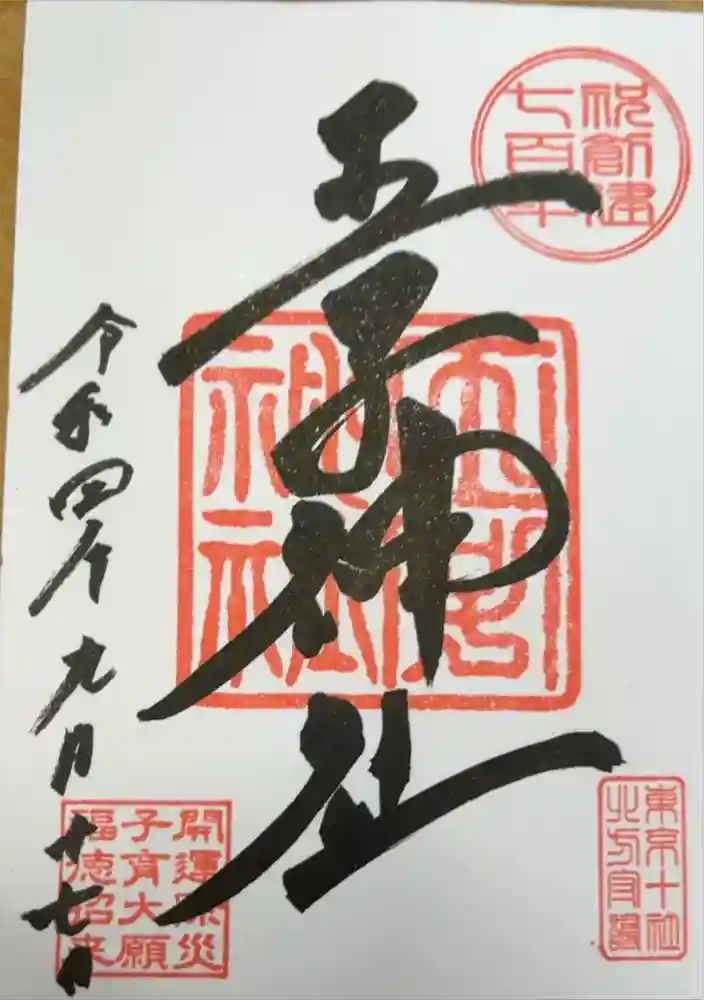 祝創建
七百年
東京十社
北方守護
王子神社
開運除災
子育大願
福徳招来
令和四年九月十七日